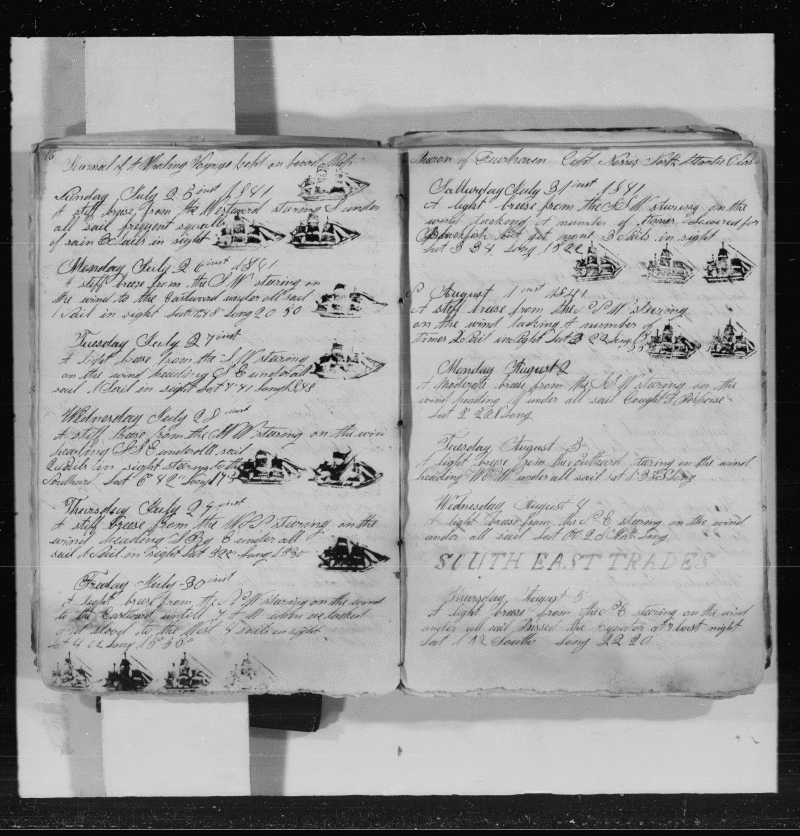 16
Journal of A Whaling Voyage kept on board Ship
Sunday July 25 inst 1841
A stiff breeze from the Westward stering S under
all sail frequent squalls
of rain 2 Sails in sight
Monday July 26 inst 1841
A stiff breeze from the S W stering on
the wind to the Eastward under all sail
1 Sail in sight Lat Long 20 50
Tuesday July 27 inst
A light breeze from the S W stering
on the wind heading S E under all
sail 1 Sail in sight Lat 7 41 Long
Wednesday July 28 inst
A stiff breeze from the W stering on the wind
heading S S E under all sail
2 Sails in sight stering to the
Southard Lat 6 42 Long 17
Thersday July 29 inst
A stiff breeze from the stering on the
wind heading S By E under all
sail 1 Sail in sight Lat Long 18 30
Friday July 30 inst
A light breeze from the S W stering on the wind
to the Eastward untill when we tacked
and stood to the West 4 sails in sight
Lat 4 Long 18
Sharon of Fairhaven Capt Norris North Atlantic Ocean
Saturday July 31 inst 1841
A light breeze from the S W stering on the
wind tacking A number of times Lowered for
Blackfish but got none 3 Sails in sight
Lat 3 34 Long
S August 1 inst 1841
A stiff breeze from the S S W stering
on the wind tacking A number of
times 2 Sail in sight Lat 3 22 Long
Monday August 2
A Moderate breeze from the S W stering on the
wind heading under all sail Caught A Porpoise
Lat 2 Long
Tuesday August 3
A light breeze from the Southward stering on the wind
heading under all sail Lat 1 Long
Wednesday August 4
A light breeze from the S E stering on the wind
under all sail Lat Long
SOUTH EAST TRADES
Thursday August 5
A light breeze from the S E stering on the wind
under all sail Passed the equator at last night
Lat 1 12 South Long 22 20